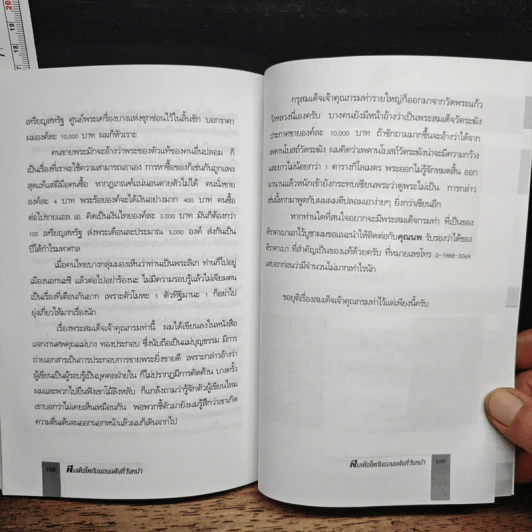 เหรียญสหรัฐ ศูนย์พระเครื่องบางแห่งซุกซ่อนไว้ในลิ้นชัก บอกราคา
ผมองค์ละ 10,000 บาท ผมก็หัวเราะ
คนขายพระมักจะอ้างว่าพระของตัวแท้ของคนอื่นปลอม ก็
เป็นเรื่องที่เราจะใช้ความสามารถเอาเอง การหาซื้อของก็เช่นกันถูกแพง
สุดแท้แต่ฝีมือคนซื้อ หากฎเกณฑ์แน่นอนตายตัวไม่ได้ คนนั่งขาย
องค์ละ 4 บาท พระร้อยองค์จะได้เงินอย่างมาก 400 บาท คนซื้อ
ต่อไปขายแอล.เอ. คิดเป็นเงินไทยองค์ละ 3,000 บาท มันก็ต้องกว่า
100 เหรียญสหรัฐ ส่งพระเดือนละประมาณ 3,000 องค์ ส่งกันเป็น
ปีได้กำไรมหาศาล
เมื่อคนไทยบางกลุ่มมองเห็นว่าท่านเป็นพระลังกา ท่านก็ไปอยู่
เมืองนอกนะซี แล้วต่อไปอย่าร้องนะ ไม่มีความรอบรู้แล้วไม่เจียมตน
เป็นเรื่องที่เตือนกันยาก เพราะตัวโมหะ 1 ตัวทิฐิมานะ 1 ก็อย่าไป
ยุ่งเกี่ยวให้มากเรื่องนัก
เรื่องพระสมเด็จเจ้าคุณกรมท่านี้ ผมได้เขียนลงในหนังสือ
แจกงานศพคุณแม่บาง ทองประกอบ ซึ่งนับถือเป็นแม่บุญธรรม มีการ
ถ่ายเอกสารเป็นการประกอบการขายพระยิ่งขายดี เพราะกล่าวอ้างว่า
ผู้เขียนเป็นผู้รอบรู้เป็นบุคคลฝ่ายใน ก็ไม่ปรากฏมีการคัดค้าน บางครั้ง
ผมและพวกไปยืนฟังเขาโม้ลิงหลับ ก็แกล้งถามว่ารู้จักตัวผู้เขียนไหม
เขาบอกว่าไม่เคยเห็นเหมือนกัน พอพวกชี้ตัวมายังผมรู้สึกว่าเขาเกิด
ความตื่นเต้นลนออกนอกหน้าแล้วผมก็เดินจากไป
108 ผีเสด็จโตกับของขลังที่วังหน้า
กรุสมเด็จเจ้าคุณกรมท่ารายใหญ่ก็ออกมาจากวัดพระแก้ว
วังหลวงนี่องครับ บางคนยังมีหน้าอ้างว่าเป็นพระสมเด็จวัดระฆัง
ประกาศขายองค์ละ 10,000 บาท ถ้าซักถามมากขึ้นจะอ้างว่าได้จาก
เพดานโบสถ์วัดระฆัง ผมคิดว่าเพดานโบสถ์วัดระฆังน่าจะมีความกว้าง
และยาวไม่น้อยกว่า 1 ตารางกิโลเมตร พระออกไม่รู้จักหมดสิ้น ออก
มานานแล้วหนักเข้ายังกระทบเซียนพระว่าดูพระไม่เป็น การกล่าว
เช่นนี้หากมาพูดกับผมผมตีปลอมเอาง่ายๆ ยิ่งกว่าเซียนอีก
หากท่านใดที่สนใจอยากจะมีพระสมเด็จกรมท่า ที่เป็นของ
ไว้บูชาผมขอแนะนำให้ติดต่อกับคุณนพ รับรองว่าได้ของ
ที่สำคัญเป็นของแท้ด้วยครับ ที่หมายเลขโทร 0-1988-3069
แต่บอกก่อนว่ามีจำนวนไม่มากเท่าไรนัก
ขอยุติเรื่องสมเด็จเจ้าคุณกรมท่าไว้แต่เพียงนี้ครับ
ผีเสด็จโตกับของขลังที่วังหน้า 109